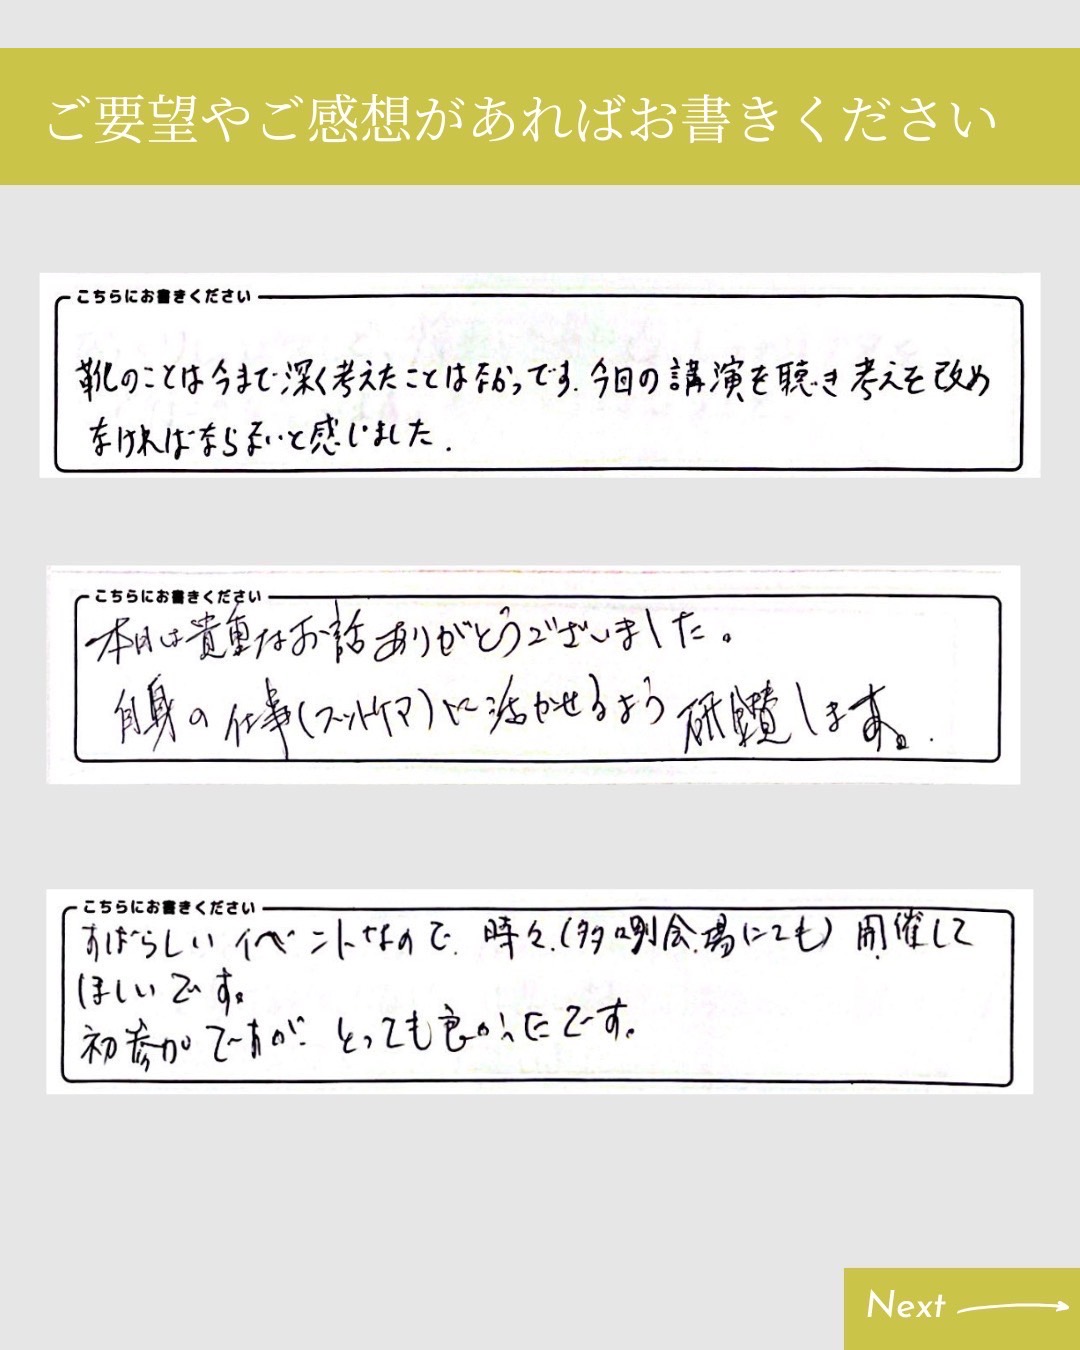 ご要望やご感想があればお書きください
こちらにお書きください
靴のことは今まで深く考えたことはなかっです.今回の講演を聴き考えを改め
なければならないと感じました.
こちらにお書きください
本日は貴重なお話ありがとうございました。
自身の仕事(フットケア)に活かせるよう研鑽します。
こちらにお書きください
すばらしいイベントなので、時々、(別会場にても)開催して
ほしいです。
初参加ですが、とっても良かったです。
Next